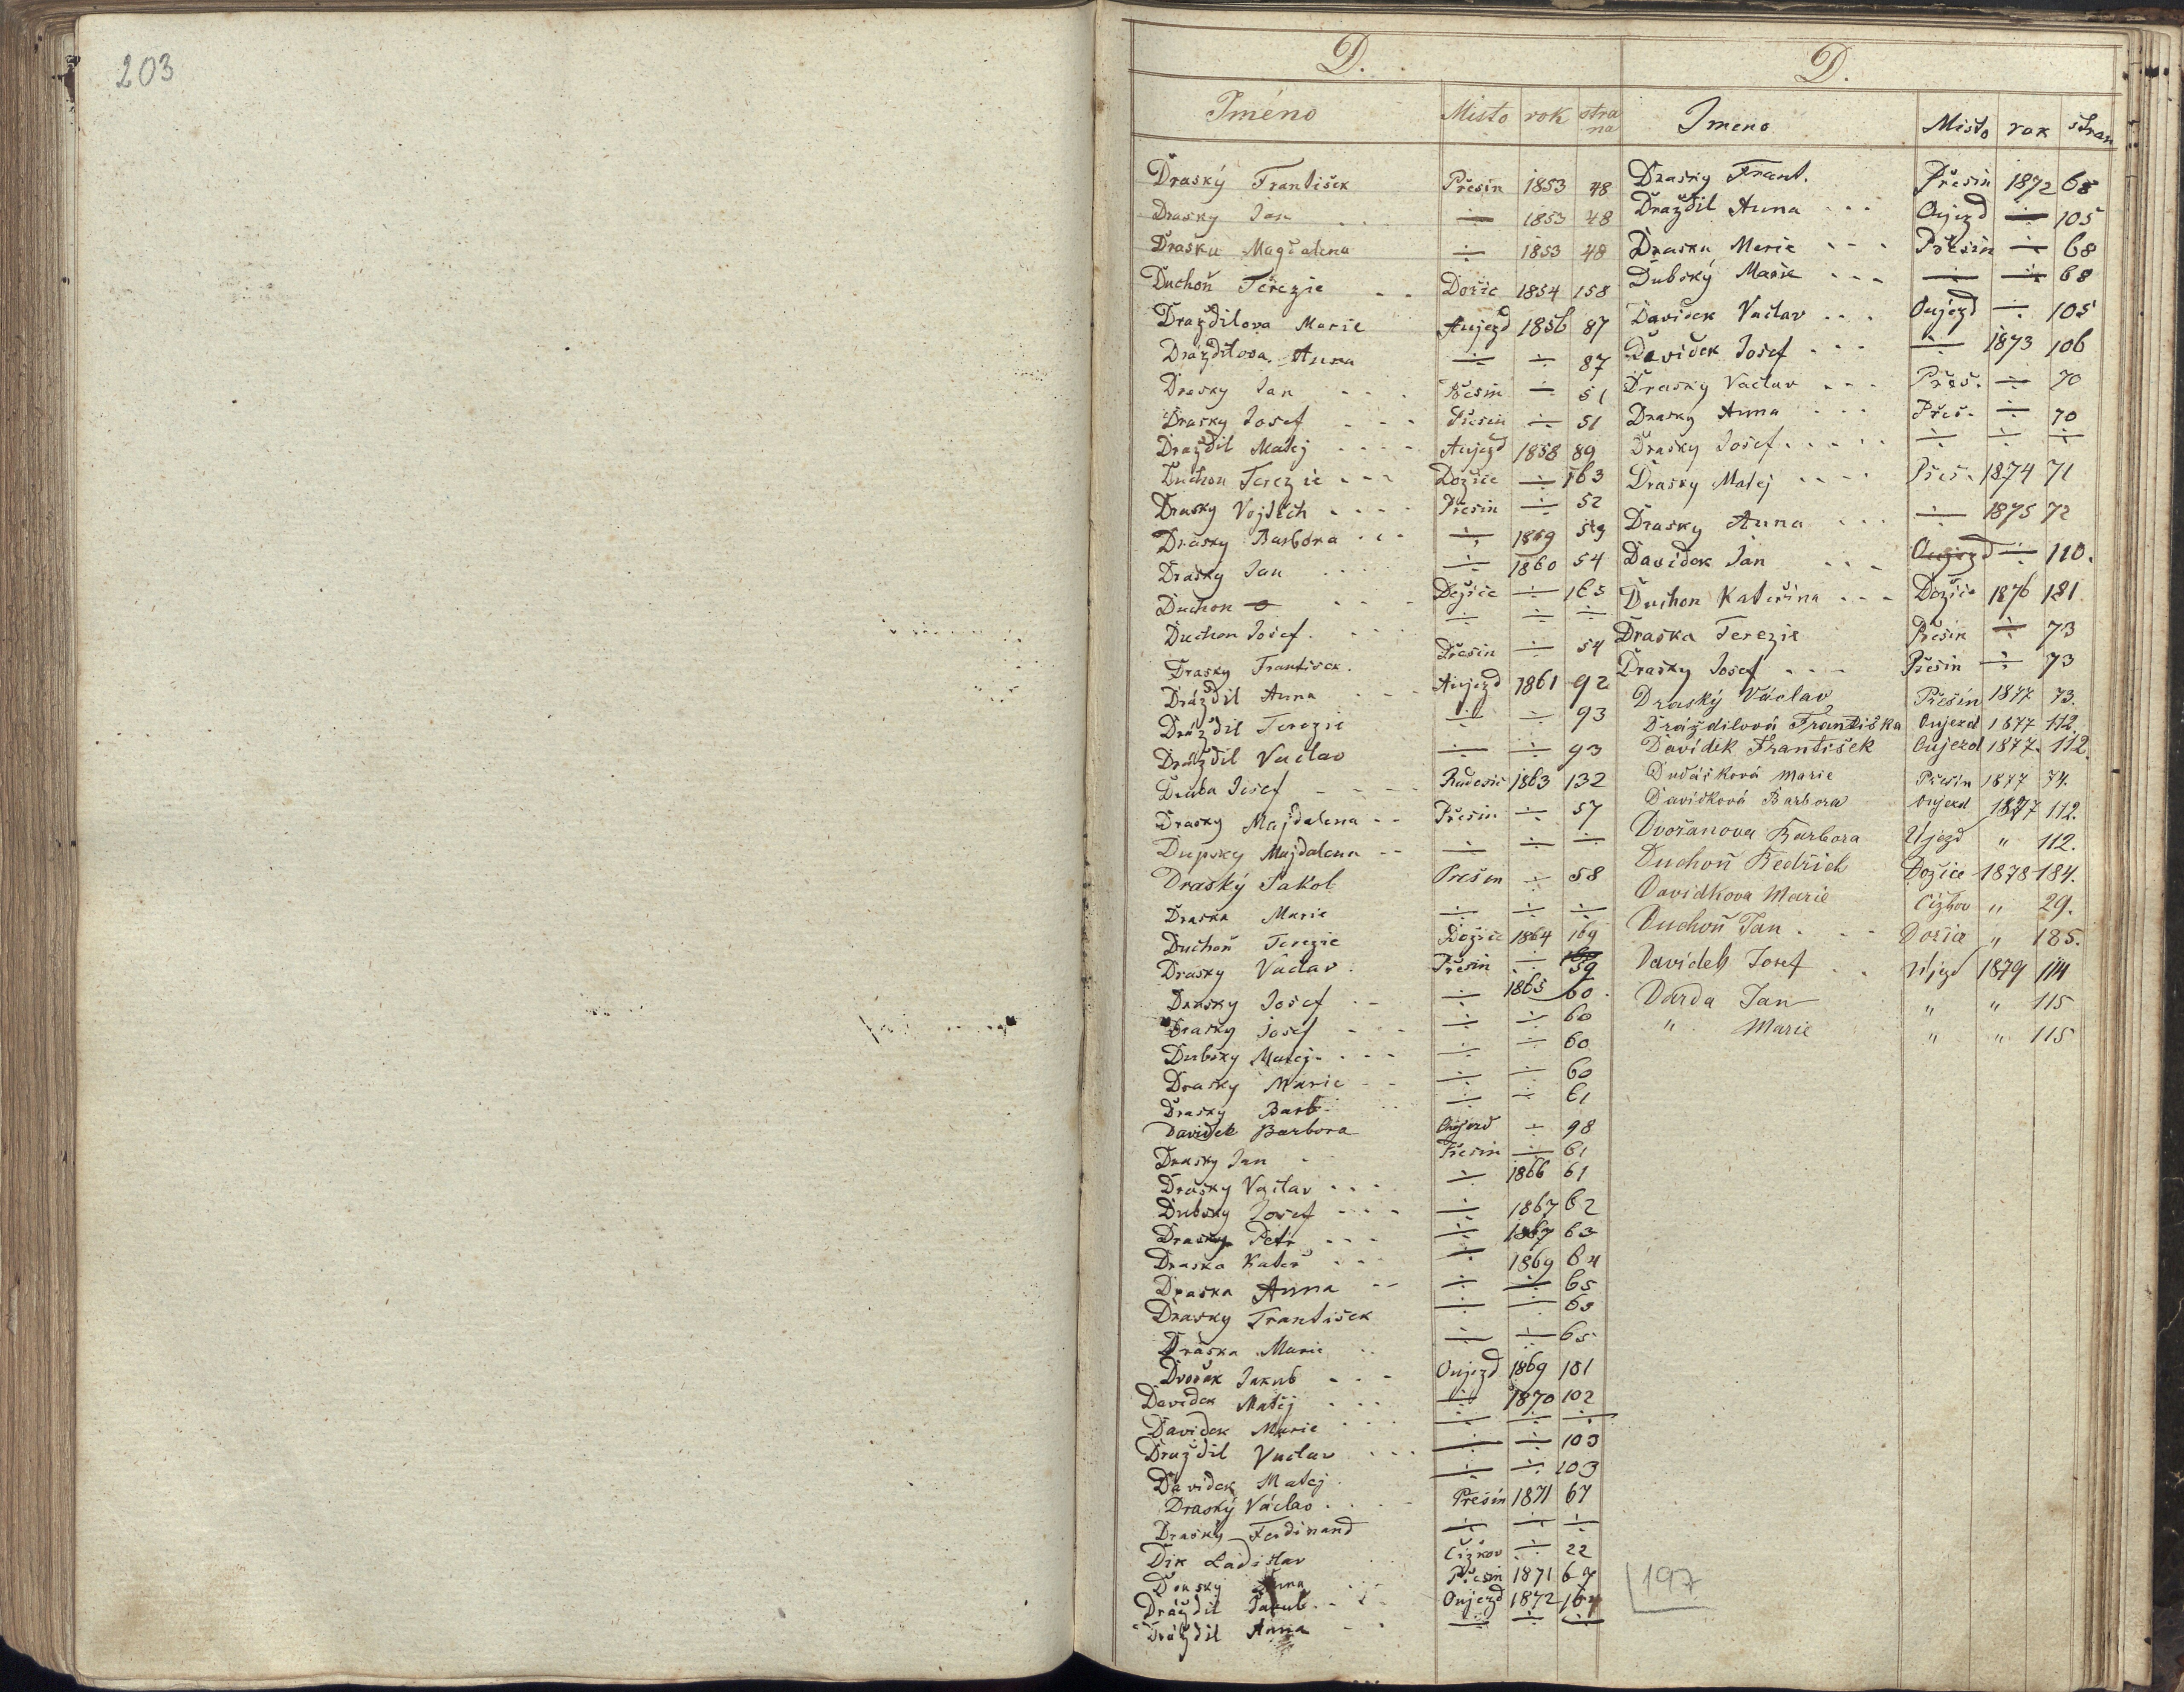 203
D.
Jméno Misto rok strana
Draský František Přesin 1853 48
Drasky Jan ÷ 1853 48
Drasku Magdalena ÷ 1853 48
Duchoň Terezie Dožic 1854 158
Draždilova Marie Aujezd 1856 87
Dráždilova Anna ÷ ÷ 87
Drasky Jan Přesin ÷ 51
Drasky Josef Přesin ÷ 51
Draždil Matěj Aujezd 1858 89
Duchon Terezie Dožice ÷ 163
Drasky Vojtěch Přesin ÷ 52
Drasky Barbora ÷ 1859 53
Drasky Jan ÷ 1860 54
Duchon Dožice ÷ 165
Duchon Josef ÷ ÷ ÷
Drasky Frantisek Přesin ÷ 54
Dráždil Anna Aujezd 1861 92
Dráždil Terezie ÷ ÷ 93
Dráždil Vaclav ÷ ÷ 93
Duba Josef Radesic 1863 132
Drasky Majdalena Přesin ÷ 57
Dupsky Majdalena ÷ ÷ ÷
Draský Jakob Přesin ÷ 58
Draska Marie ÷ ÷ ÷
Duchoň Terezie Dožic 1864 169
Drasky Václav Přesin ÷ 59
Drasky Josef ÷ 1865 60
Drasky Josef ÷ ÷ 60
Dubsky Matěj ÷ ÷ 60
Drasky Marie ÷ ÷ 60
Drasky Barb. ÷ ÷ 61
Davidek Barbora Oujezd ÷ 98
Drasky Jan Přesin ÷ 61
Drasky Vaclav ÷ 1866 61
Dubsky Josef ÷ 1867 62
Drasky Petr ÷ 1867 63
Draska Kateř ÷ 1869 64
Draska Anna ÷ ÷ 65
Drasky František ÷ ÷ 65
Draska Marie ÷ ÷ 65
Dvořak Jakub Oujezd 1869 101
Davidek Matěj ÷ 1870 102
Davidek Marie ÷ ÷ ÷
Draždil Vaclav ÷ ÷ 103
Davidek Matej ÷ ÷ 103
Draský Václav Přesin 1871 67
Drasky Ferdinand ÷ ÷ ÷
Dik Ladislav Čižkov ÷ 22
Drasky Anna Přesin 1871 67
Dráždil Jakub Oujezd 1872 104
Dráždil Anna ÷ ÷ ÷
D.
Jmeno Misto rok stran
Drasky Frant. Přesin 1872 68
Draždil Anna Oujezd ÷ 105
Draska Marie Přesin ÷ 68
Dubský Marie ÷ ÷ 68
Davidek Vaclav Oujezd ÷ 105
Davidek Josef ÷ 1873 106
Drasky Vaclav Přes. ÷ 70
Drasky Anna Přes. ÷ 70
Drasky Josef ÷ ÷ ÷
Drasky Matej Přes. 1874 71
Drasky Anna ÷ 1875 72
Davidek Jan Oujezd ÷ 110.
Duchon Kateřina Dožic 1876 181
Draska Terezie Přesin ÷ 73
Drasky Josef Přesin ÷ 73
Draský Václav Přesín 1877 73.
Dráždilová Františka Oujezd 1877 112.
Davídek František Oujezd 1877. 112.
Dudásková Marie Přesin 1877 74.
Davidková Barbora Oujezd 1877 112.
Dvořanova Barbora Újezd " 112.
Duchoň Bedřich Dožice 1878 184.
Davidkova Marie Čižkov " 29.
Duchoň Jan Dožic " 185.
Davidek Josef Újezd 1879 114
Darda Jan " " 115
" Marie " " 115
197